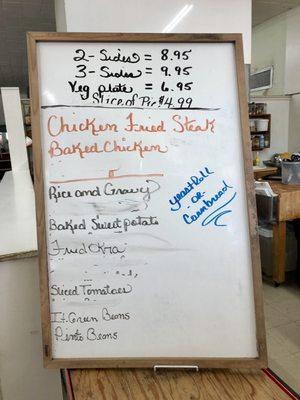 2- Sides = 8.95
3- Sides = 9.95
Veg plate = 6.95
Slice of Pie $4.99
Chicken Fried Steak
Baked Chicken
Rice and Gravy
Yeast Roll
or
Cornbread
Baked Sweet potato
Fried Okra
Sliced Tomatoes
It. Green Beans
Pinto Beans